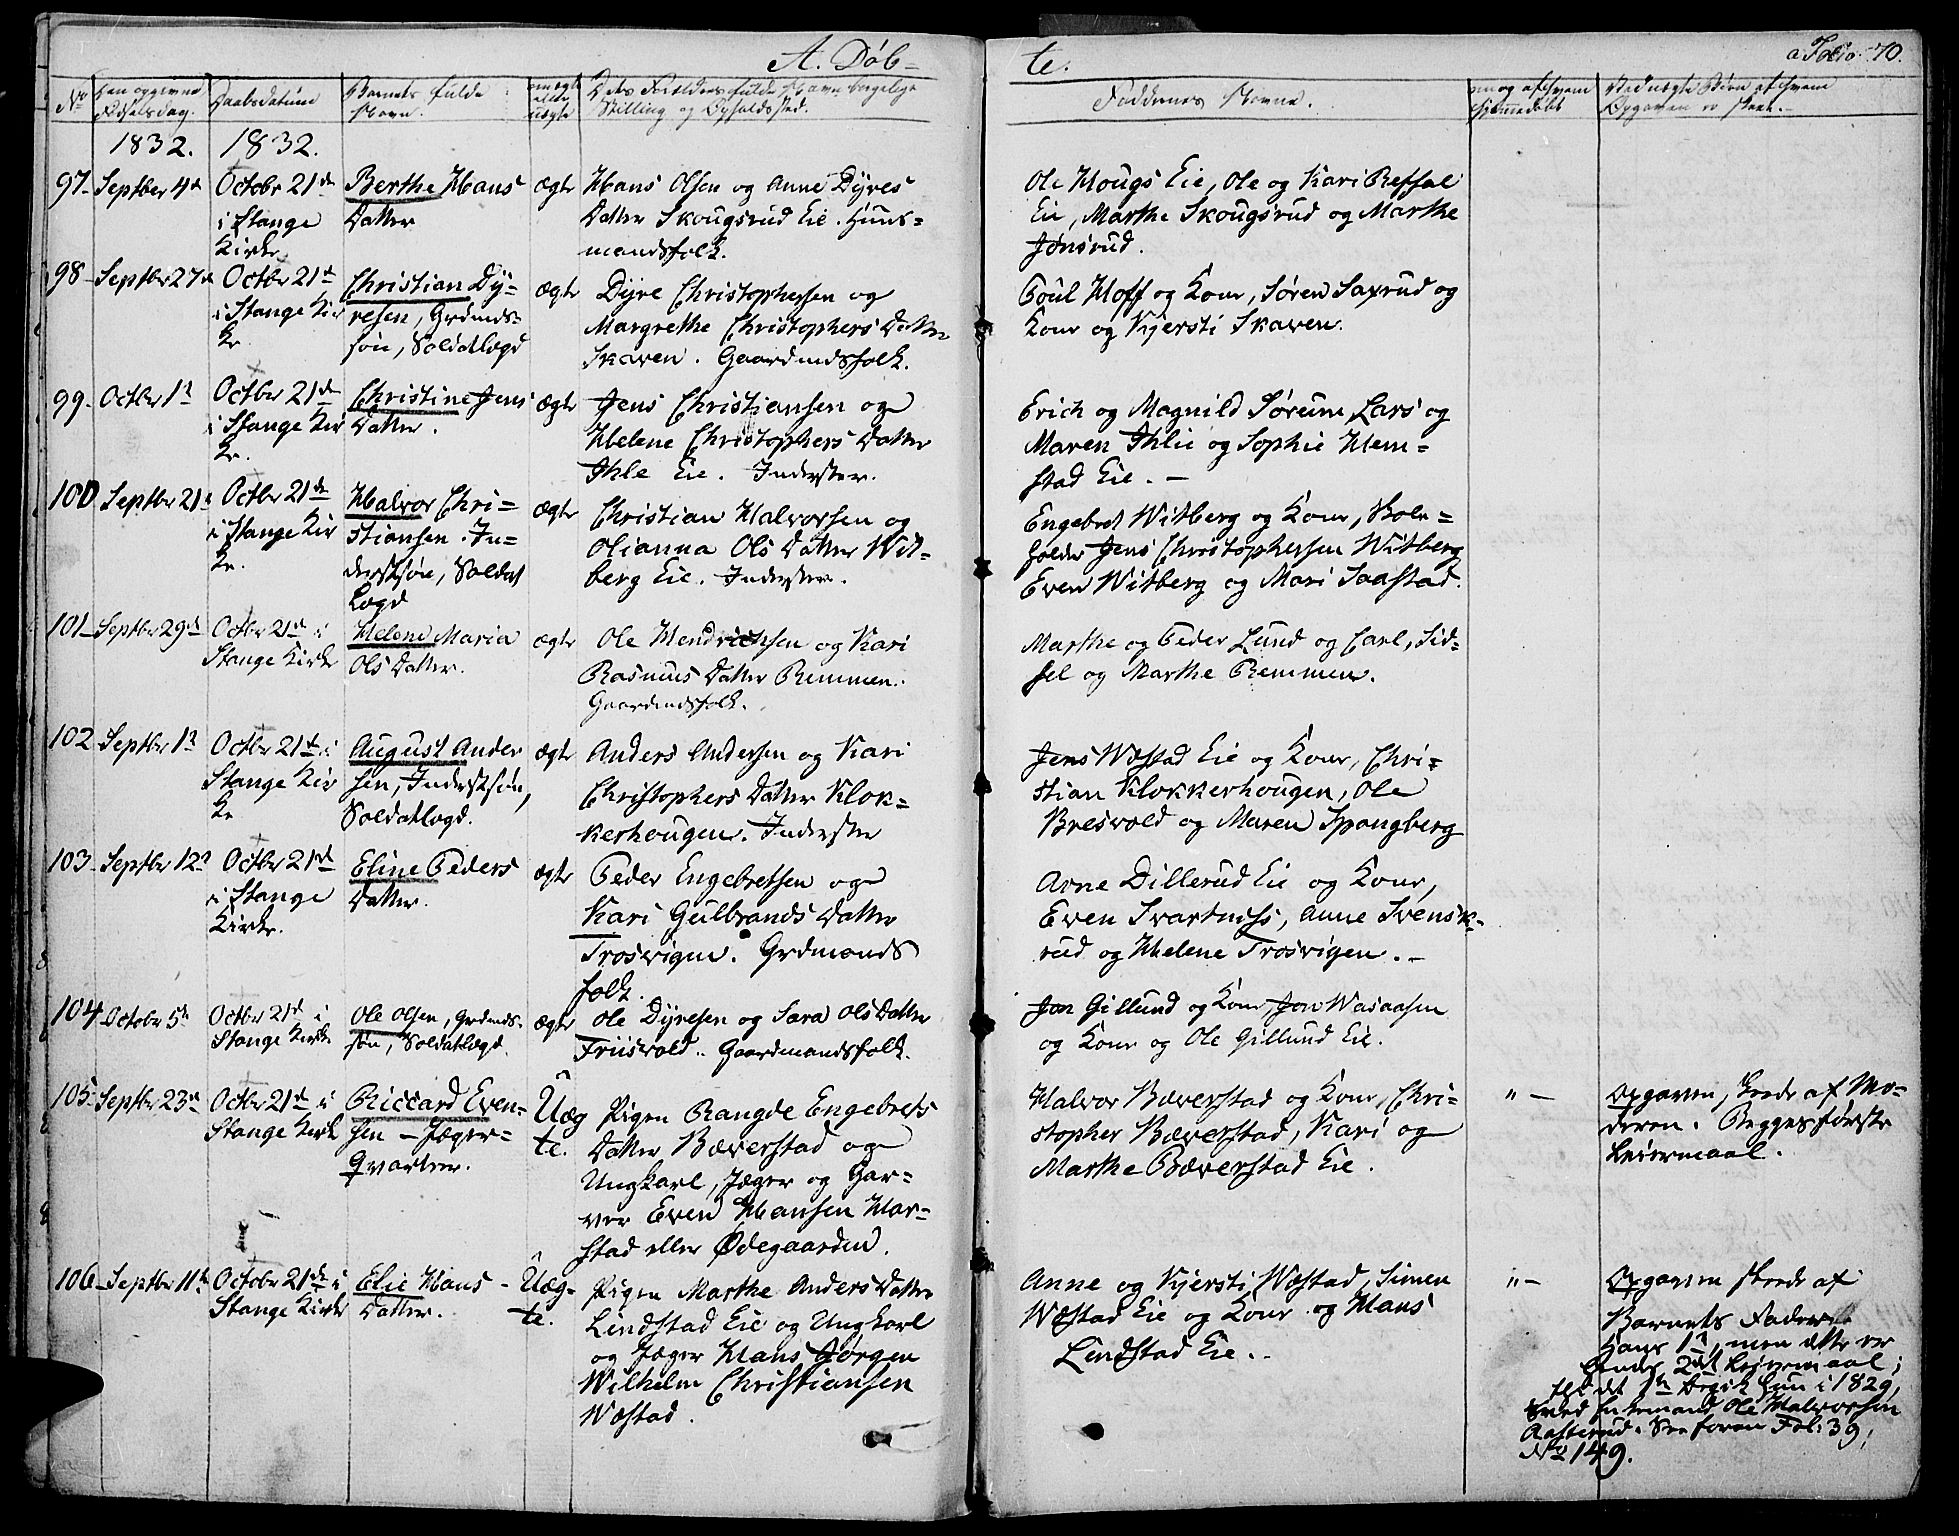 A. Døb-
te.
a Folio. 70.
No
Den opgivne
Fødselsdag.
Daabsdatum
Barnets fulde
Navn.
om ægte
eller
uægte
Dets Forældres fulde Navn borgelige
Stilling og Opholdssted.
Faddernes Navne.
om og af hvem
hjemmedøbt
Ved uægte Børn af hvem
Opgaven er skeet.
1832.
1832.
97-
Septber 4de
Octobr 21de
i Stange
Kirke
Berthe Hans
Datter
ægte
Hans Olsen og Anne Dyres
Datter Skougsrud Eie. Huus-
mandsfolk.
Ole Hougs Eie, Ole og Kari Refsal
Eie, Marthe Skougsrud og Marthe
Jønsrud.
98-
Septbr 27de
Octbr 21de
i Stange Kir
ke
Christian Dy-
resen, Grdmds-
søn, Soldatlægd
ægte
Dyre Christophersen og
Margrethe Christophers Datter
Skaven. Gaardmdsfolk.
Poul Hoff og Kone, Søren Saxrud og
Kone og Kjersti Skaven.
99-
Octbr 1ste
Octbr 21de
i Stange Kir
ke.
Christine Jens
Datter.
ægte
Jens Christiansen og
Helene Christophers Datter
Ihle Eie. Inderster.
Erich og Magnild Sørum, Lars og
Maren Ihle og Sophie Hem-
stad Eie. -
100
Septbr 21de
Octbr 21de
i Stange Kir
ke.
Halvor Chri-
stiansen. In-
derstsøn, Soldat
Lægd
ægte
Christian Halvorsen og
Olianna Ols Datter Wit-
berg Eie. Inderster.
Engebret Witberg og Kone, Skole-
holder Jens Christophersen Witberg
Even Witberg og Mari Saastad.
101-
Septbr 29de
Octbr 21de i
Stange Kirke
Helene Maria
Ols Datter.
ægte
Ole Hendrichsen og Kari
Rasmus Datter Remmen.
Gaardmdsfolk.
Marthe og Peder Lund og Carl, Sid-
sel og Marthe Remmen.
102
Septbr 1ste
Octbr 21de i
Stange Kir
ke
August Ander
sen, Inderstsøn,
Soldatlægd.
ægte
Anders Andersen og Kari
Christophers Datter Klok-
kerhougen. Inderster
Jens Wæstad Eie og Kone, Chri-
stian Klokkerhougen, Ole
Bresvold og Maren Spangberg
103-
Septbr 12te
Octbr 21de
i Stange
Kirke.
Eline Peders
Datter.
ægte
Peder Engebretsen og
Kari Gulbrands Datter
Trosvigen. Grdmands
folk.
Arne Dillerud Eie og Kone,
Even Svartness, Anne Svensk-
rud og Helene Trosvigen. -
104
Octobr 5te
Octbr 21de i
Stange Kirke
Ole Olsen, Grdmds-
søn, Soldatlægd.
ægte
Ole Dyresen og Sara Ols Datter
Friisvold. Gaardmandsfolk.
Jon Gillund og Kone, Jon Wasaasen
og Kone og Ole Gillund Eie.
105-
Septbr 23de
Octbr 21de i
Stange Kirke
Riccard Even-
sen - Jæger-
Qvarteer.
Uæg
te.
Pigen Rangde Engebrets
Datter Bæverstad og
Ungkarl, Jæger og Gar-
ver Even Hansen Har-
stad eller Ødegaarden.
Halvor Bæverstad og Kone, Chri-
stopher Bæverstad, Kari og
Marthe Bæverstad Eie.
" -
Opgaven skede af Mo-
deren. Begges første
Leiermaal.
106-
Septbr 11te
Octobr 21de i
Stange Kirke
Elie Hans-
Datter.
Uæg-
te.
Pigen Marthe Anders Datter
Lindstad Eie og Ungkarl
og Jæger Hans Jørgen
Wilhelm Christiansen
Wæstad.
Anne og Kjersti Wæstad, Simen
Wæstad Eie og Kone og Hans
Lindstad Eie.
" -
Opgaven skede af
Barnets Fader
hans 1ste, men dette er
hendes 2det Leiermaal;
thi det 1ste begik hun i 1829,
med Enkemand Ole Halvorsen
Aasterud. See foran Fol: 39,
No 149.